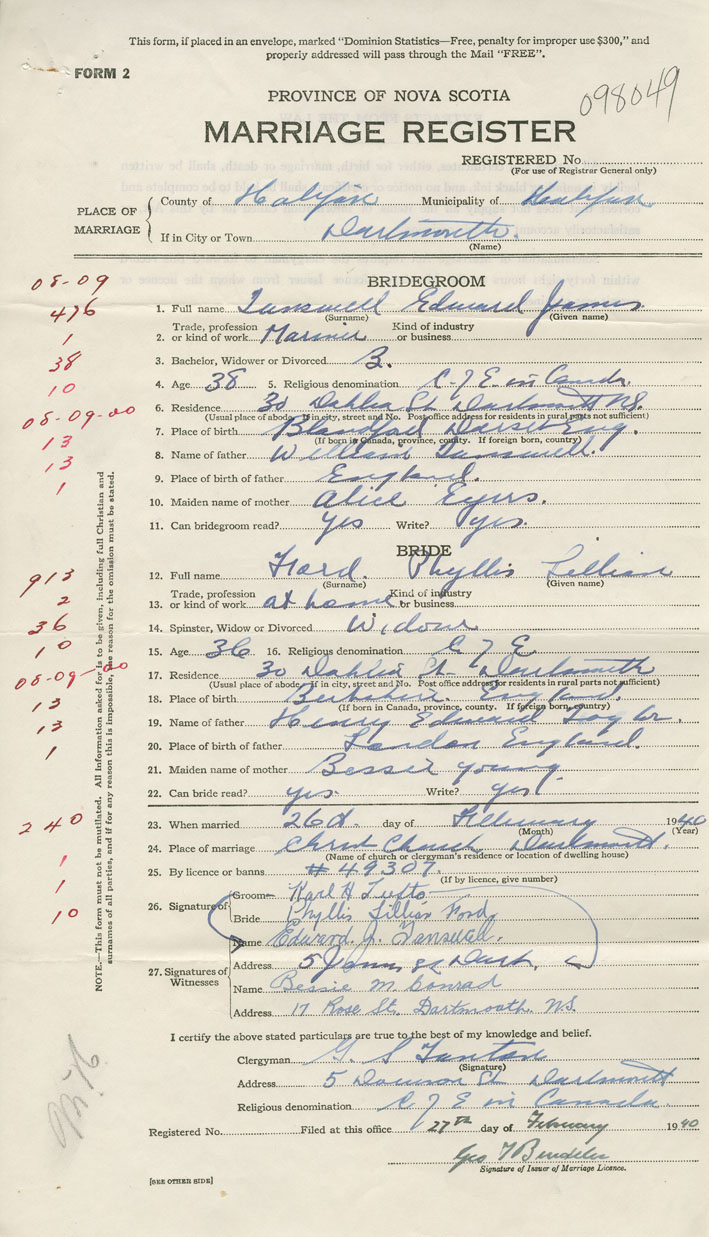 This form, if placed in an envelope, marked "Dominion Statistics—Free, penalty for improper use $300," and
properly addressed will pass through the Mail "FREE".
FORM 2
098049
PROVINCE OF NOVA SCOTIA
MARRIAGE REGISTER
REGISTERED No.
(For use of Registrar General only)
PLACE OF MARRIAGE
County of Halifax Municipality of Halifax
If in City or Town Dartmouth.
(Name)
BRIDEGROOM
08-09
1. Full name Tanswell Edward James
(Surname) (Given name)
476
Trade, profession Kind of industry
2. or kind of work Marine or business
1
3. Bachelor, Widower or Divorced B.
38
4. Age 38 5. Religious denomination C of E in Canada
10
6. Residence 30 Dahlia St Dartmouth N.S.
(Usual place of abode, if in city, street and No. Post office address for residents in rural parts not sufficient)
08-09-00
7. Place of birth Blandford Dorset Eng.
(If born in Canada, province, county. If foreign born, country)
13
8. Name of father William Tanswell.
13
9. Place of birth of father England.
1
10. Maiden name of mother Alice Eyers.
11. Can bridegroom read? Yes Write? yes.
BRIDE
913
12. Full name Ford. Phyllis Lillian
(Surname) (Given name)
2
Trade, profession Kind of industry
13. or kind of work at home or business
36
14. Spinster, Widow or Divorced Widow
10
15. Age 36 16. Religious denomination C of E
08-09-00
17. Residence 30 Dahlia St Dartmouth
(Usual place of abode, if in city, street and No. Post office address for residents in rural parts not sufficient)
13
18. Place of birth Berkshire England.
(If born in Canada, province, county. If foreign born, country)
13
19. Name of father Henry Edward Taylor.
1
20. Place of birth of father London England.
21. Maiden name of mother Bessie Young
22. Can bride read? yes. Write? yes.
240
23. When married 26th day of February 1940
(Month) (Year)
24. Place of marriage Christ Church Dartmouth.
(Name of church or clergyman's residence or location of dwelling house)
1
25. By licence or banns # 49307.
(If by licence, give number)
1
26. Signature of
Groom Karl H
10
Bride Phyllis Lillian Ford
Name Edward J. Tanswell.
Address 5 St Dart.
27. Signatures of Witnesses
Name Bessie M. Conrad
Address 17 Rose St. Dartmouth. N.S.
NOTE.—This form must not be mutilated. All information asked for is to be given, including full Christian and
surnames of all parties, and if for any reason this is impossible, the reason for the omission must be stated.
I certify the above stated particulars are true to the best of my knowledge and belief.
Clergyman G. S
(Signature)
Address 5 Dawson St Dartmouth
Religious denomination C of E in Canada
Registered No. Filed at this office 27th day of February 1940
Geo
Signature of Issuer of Marriage Licence.
[SEE OTHER SIDE]